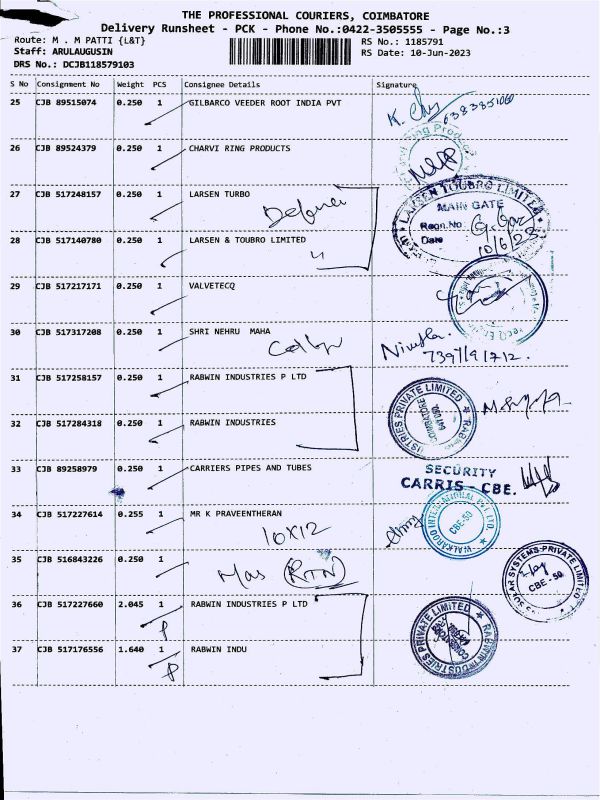 THE PROFESSIONAL COURIERS, COIMBATORE
Delivery Runsheet - PCK - Phone No.:0422-3505555 - Page No.:3
Route: M . M PATTI {L&T}
RS No.: 1185791
Staff: ARULAUGUSIN
RS Date: 10-Jun-2023
DRS No.: DCJB118579103
S No Consignment No Weight PCS Consignee Details Signature
25 CJB 89515074 0.250 1 GILBARCO VEEDER ROOT INDIA PVT
26 CJB 89524379 0.250 1 CHARVI RING PRODUCTS
27 CJB 517248157 0.250 1 LARSEN TURBO
LARSEN TOUBRO LIMITED
MAIN GATE
Regn.No
Date 10/6/23
28 CJB 517140780 0.250 1 LARSEN & TOUBRO LIMITED
29 CJB 517217171 0.250 1 VALVETECQ
30 CJB 517317208 0.250 1 SHRI NEHRU MAHA
College
31 CJB 517258157 0.250 1 RABWIN INDUSTRIES P LTD
32 CJB 517284318 0.250 1 RABWIN INDUSTRIES
33 CJB 89258979 0.250 1 CARRIERS PIPES AND TUBES
SECURITY
CARRIS - CBE.
34 CJB 517227614 0.255 1 MR K PRAVEENTHERAN
10X12
WALKAROO INTERNATIONAL PVT. LTD.
CBE-50
35 CJB 516843226 0.250 1
Mas RTN
SYSTEMS-PRIVATE LIMITED
CBE - 50
36 CJB 517227660 2.045 1 RABWIN INDUSTRIES P LTD
P
RABWIN INDUSTRIES PRIVATE LIMITED
37 CJB 517176556 1.640 1 RABWIN INDU
P